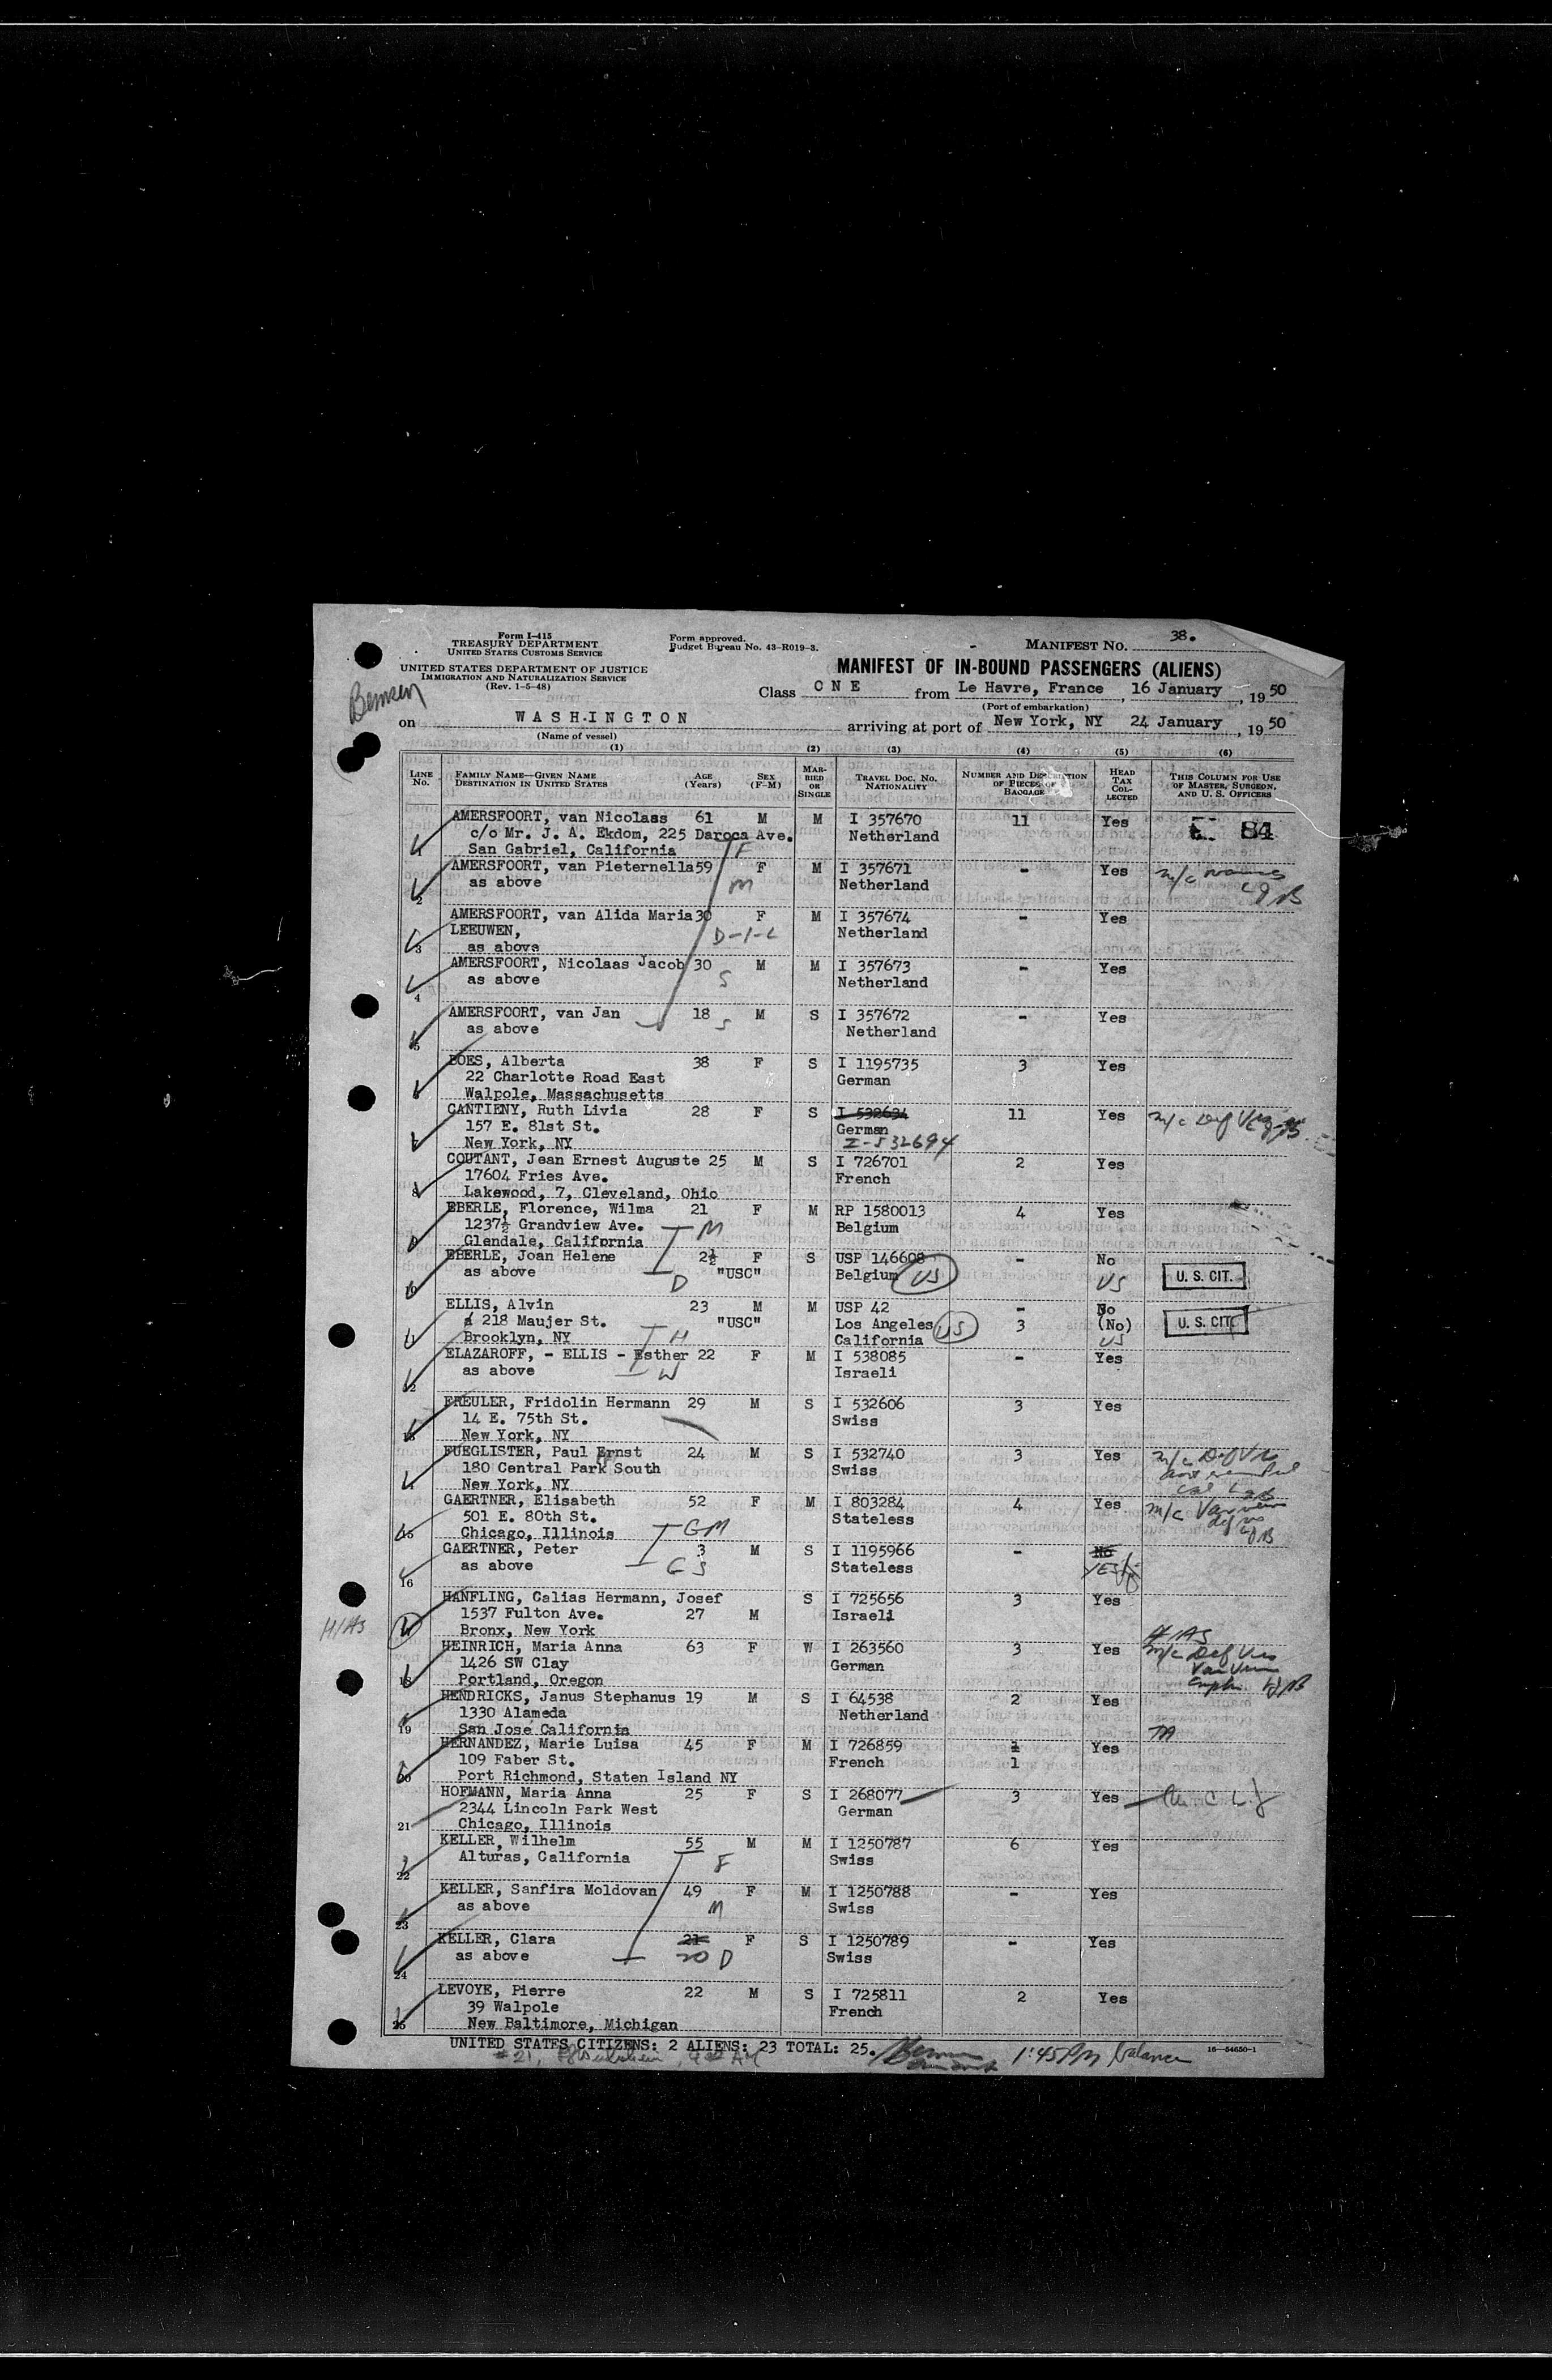 Form I-415
TREASURY DEPARTMENT
UNITED STATES CUSTOMS SERVICE
UNITED STATES DEPARTMENT OF JUSTICE
IMMIGRATION AND NATURALIZATION SERVICE
(Rev. 1-5-48)
Form approved.
Budget Bureau No. 43-R019-3.
MANIFEST NO. 38.
MANIFEST OF IN-BOUND PASSENGERS (ALIENS)
Class O N E from Le Havre, France, 16 January, 19 50
(Port of embarkation)
on W A S H I N G T O N arriving at port of New York, NY 24 January, 19 50
(Name of vessel)
(1) (2) (3) (4) (5) (6)
LINE No. FAMILY NAME—GIVEN NAME DESTINATION IN UNITED STATES AGE (Years) SEX (F-M) MARRIED OR SINGLE TRAVEL DOC. NO. NATIONALITY NUMBER AND DESCRIPTION OF PIECES OF BAGGAGE HEAD TAX COLLECTED THIS COLUMN FOR USE OF MASTER, SURGEON, AND U. S. OFFICERS
AMERSFOORT, van Nicolaas 61 M M I 357670 11 Yes 84
c/o Mr. J. A. Ekdom, 225 Daroca Ave. Netherland
1 San Gabriel, California F
AMERSFOORT, van Pieternella 59 F M I 357671 - Yes m/c
as above M Netherland
2
AMERSFOORT, van Alida Maria 30 F M I 357674 - Yes
LEEUWEN, D-I-L Netherland
3 as above
AMERSFOORT, Nicolaas Jacob 30 M M I 357673 - Yes
as above S Netherland
4
AMERSFOORT, van Jan 18 M S I 357672 - Yes
as above S Netherland
5
BOES, Alberta 38 F S I 1195735 3 Yes
22 Charlotte Road East German
Walpole, Massachusetts
CANTIENY, Ruth Livia 28 F S I 532634 11 Yes m/c Def
157 E. 81st St. German
New York, NY I-532694
COUTANT, Jean Ernest Auguste 25 M S I 726701 2 Yes
17604 Fries Ave. French
8 Lakewood, 7, Cleveland, Ohio
EBERLE, Florence, Wilma 21 F M RP 1580013 4 Yes
1237½ Grandview Ave. M Belgium
9 Glendale, California
EBERLE, Joan Helene 2½ F S USP 146608 - No
as above "USC" Belgium US US U. S. CIT.
10 D
ELLIS, Alvin 23 M M USP 42 - No
218 Maujer St. "USC" Los Angeles 3 (No) U. S. CIT.
11 Brooklyn, NY H California US US
ELAZAROFF, - ELLIS - Esther 22 F M I 538085 - Yes
as above W Israeli
12
FREULER, Fridolin Hermann 29 M S I 532606 3 Yes
14 E. 75th St. Swiss
13 New York, NY
FUEGLISTER, Paul Ernst 24 M S I 532740 3 Yes m/c Def
180 Central Park South Swiss
New York, NY
GAERTNER, Elisabeth 52 F M I 803284 4 Yes m/c
501 E. 80th St. Stateless
15 Chicago, Illinois GM
GAERTNER, Peter 3 M S I 1195966 - No
as above GS Stateless YES
16
HANFLING, Calias Hermann, Josef S I 725656 3 Yes
1537 Fulton Ave. 27 M Israeli
HIAS Bronx, New York
HIAS
HEINRICH, Maria Anna 63 F W I 263560 3 Yes m/c Def
1426 SW Clay German
18 Portland, Oregon
HENDRICKS, Janus Stephanus 19 M S I 64538 2 Yes
1330 Alameda Netherland
19 San Jose California
HERNANDEZ, Marie Luisa 45 F M I 726859 1 Yes
109 Faber St. French 1
20 Port Richmond, Staten Island NY
HOFMANN, Maria Anna 25 F S I 268077 3 Yes
2344 Lincoln Park West German
21 Chicago, Illinois
KELLER, Wilhelm 55 M M I 1250787 6 Yes
Alturas, California F Swiss
22
KELLER, Sanfira Moldovan 49 F M I 1250788 - Yes
as above M Swiss
23
KELLER, Clara 21 F S I 1250789 - Yes
as above 20 D Swiss
24
LEVOYE, Pierre 22 M S I 725811 2 Yes
39 Walpole French
25 New Baltimore, Michigan
UNITED STATES CITIZENS: 2 ALIENS: 23 TOTAL: 25. 1:45 PM balance
16—54650-1